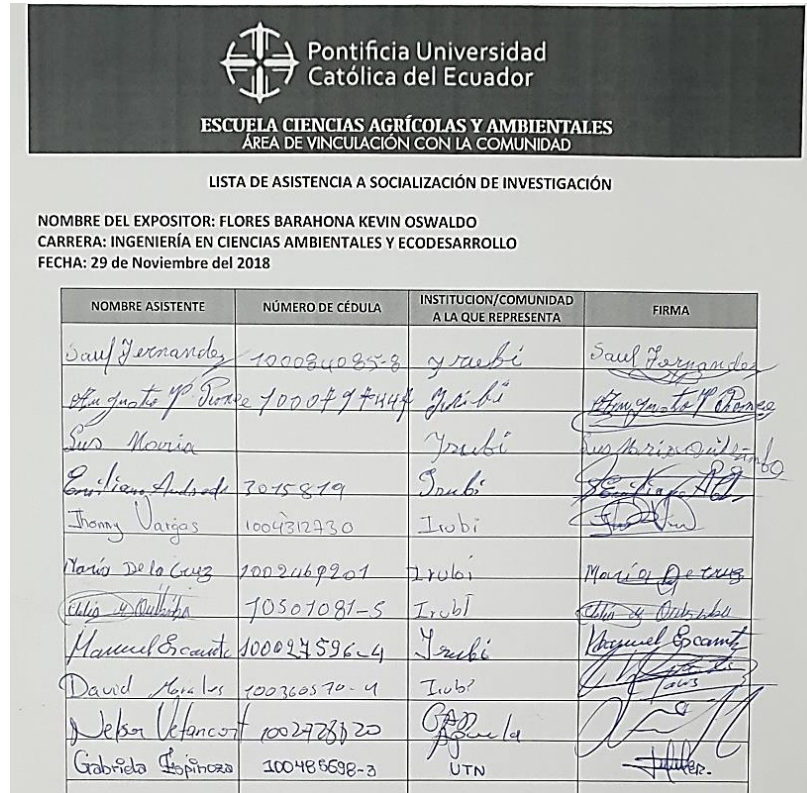 Pontificia Universidad
Católica del Ecuador
ESCUELA CIENCIAS AGRÍCOLAS Y AMBIENTALES
ÁREA DE VINCULACIÓN CON LA COMUNIDAD
LISTA DE ASISTENCIA A SOCIALIZACIÓN DE INVESTIGACIÓN
NOMBRE DEL EXPOSITOR: FLORES BARAHONA KEVIN OSWALDO
CARRERA: INGENIERÍA EN CIENCIAS AMBIENTALES Y ECODESARROLLO
FECHA: 29 de Noviembre del 2018
NOMBRE ASISTENTE NÚMERO DE CÉDULA INSTITUCION/COMUNIDAD A LA QUE REPRESENTA FIRMA
Saul Fernandez 100084085-8 Irubí Saul Fernandez
Augusto 100079744 Irubí Augusto
Luz María Irubí Luz María
Emiliano Andrade 3015819 Irubí
Jhonny Vargas 1004312730 Irubi
María De la Cruz 1002469201 Irubi María
10501081-5 Irubí
Manuel Escanta 100027596-4 Irubí Manuel Escanta
David Morales 100360570-4 Irubí
Nelson Vetancort 100272820 GAD
Gabriela Espinoza 100485698-3 UTN